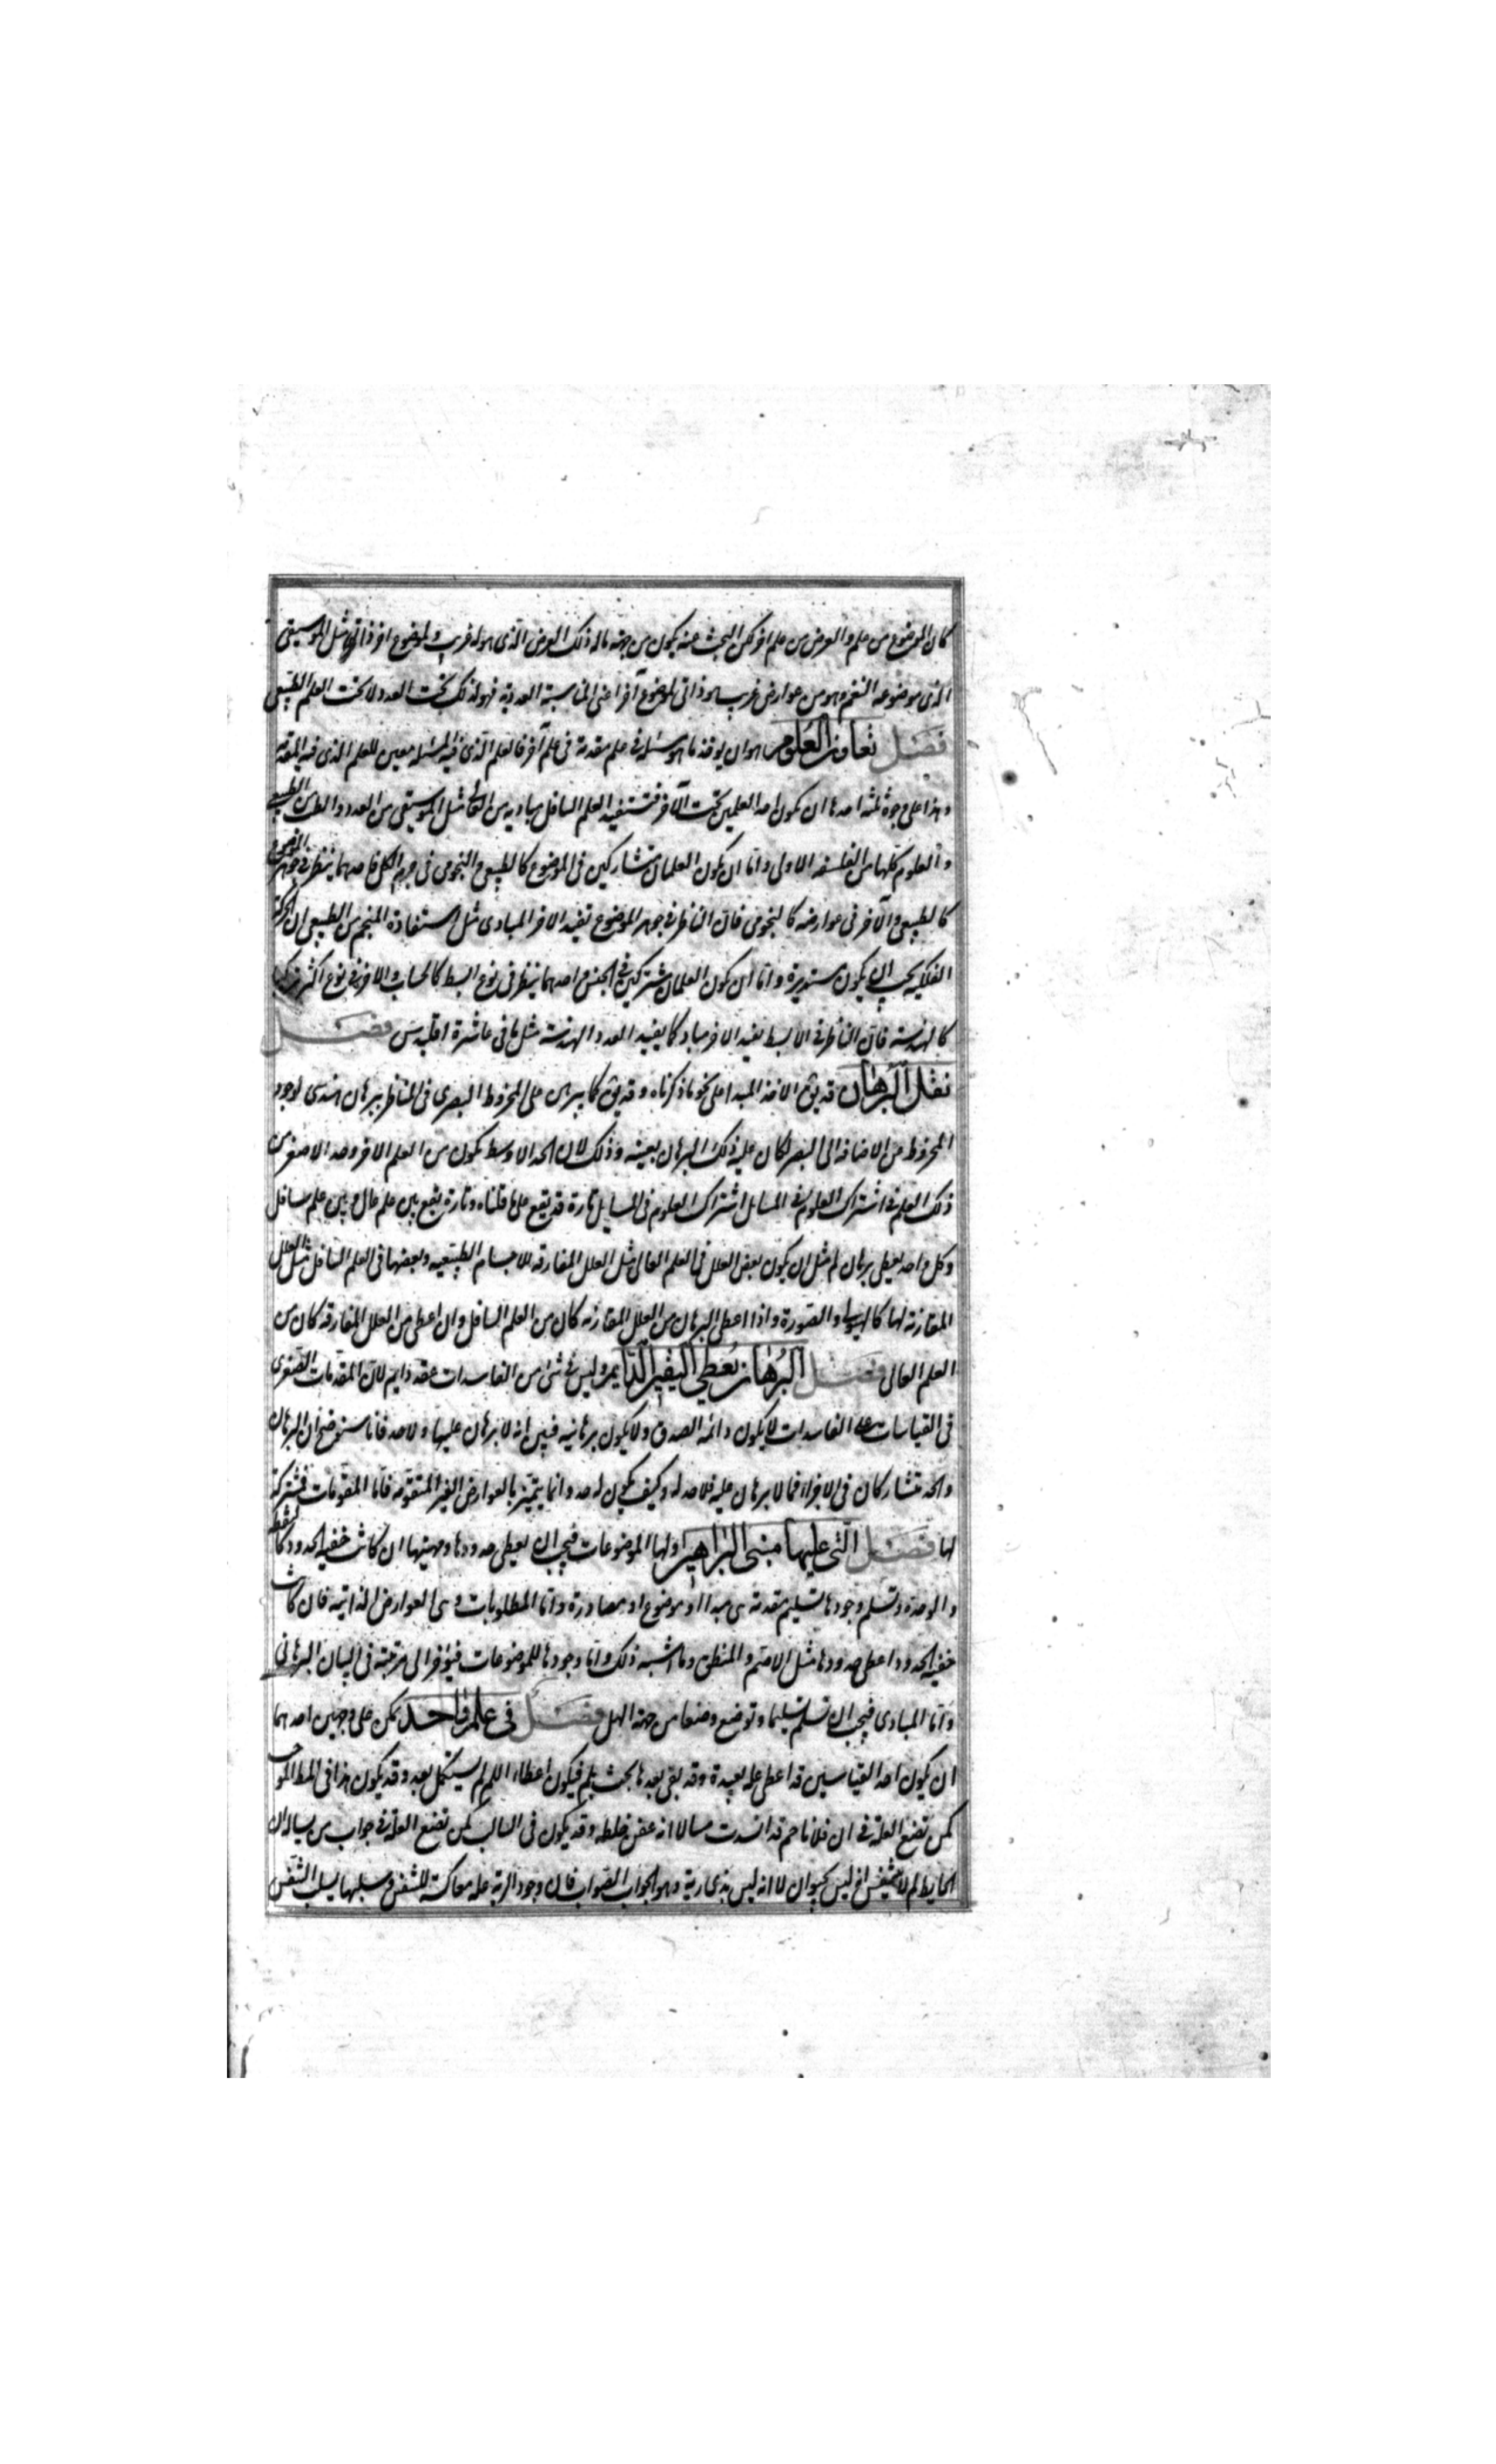 كان الموضوع من علم والعرض من علم اخر لكن البحث عنه يكون من جهة ماله ذلك العرض الذى هو له غريب ولموضوع اخر ذاتى مثل الموسيقى
الذى موضوعه النغم وهو من عوارض غريبه هو ذاتى لموضوع آخر اعنى المناسبة العددية فهو لذلك تحت العدد لا تحت العلم الطبيعى
فصل تعاون العلوم هو ان يوخذ ما هو مسئلة فى علم مقدمة فى علم آخر فالعلم الذى فيه المسئلة معين للعلم الذى فيه المقدمة
وهذا على وجوه ثلثة احدها ان يكون احد العلمين تحت الآخر فتستفيد العلم السافل مباديه من العالى مثل الموسيقى من العدد والطب من الطبيعى
والعلوم كلها من الفلسفه الاولى واما ان يكون العلمان متشاركين فى الموضوع كالطبيعى والنجومى فى جرم الكل فاحدهما ينظر فى جوهر الموضوع
كالطبيعى والآخر فى عوارضه كالنجومى فان الناظر فى جوهر الموضوع تفيد الاخر المبادى مثل استفادة المنجم من الطبيعى ان الحركة
الفلكيه يجب ان يكون مستديرة واما ان يكون العلمان مشتركين فى الجنس واحدهما ينظر فى نوع ابسط كالحساب والاخر فى نوع اكثر تركيبا
كالهندسة فان الناظر فى الابسط تفيد الاخر مباد كما يفيد العدد الهندسة مثل ما فى عاشرة اقليدس فصل
نقل البرهان قد يق الاخذ المبدا على نحو ما ذكرناه وقد يق كما يبرهن على المخروط البصرى فى المناظر ببرهان هندسى لوجود
المخروط من الاضافة الى البصر لكان عليه ذلك البرهان بعينه وذلك لان الحد الاوسط يكون من العلم الاخر وحد الاصغر من
ذلك العلم فى اشتراك العلوم فى المسايل اشتراك العلوم فى المسايل تارة قد يقع على ما قلناه وتارة يقع بين علم عال وبين علم سافل
وكل واحد يعطى برهان لم مثل ان يكون بعض العلل فى العلم العالى مثل العلل المفارقه للاجسام الطبيعيه وبعضها فى العلم السافل مثل العلل
المقارنة لها كالهيولى والصورة واذا اعطى البرهان من العلل المقارنه كان من العلم السافل وان اعطى من العلل المفارقة كان من
العلم العالى فصل البرهان يعطى اليقين الدايم وليس فى شئ من الفاسدات عقد دايم لان المقدمات الصغرى
فى القياسات على الفاسدات لا يكون دائمة الصدق ولا يكون برهانيه فبين انه لا برهان عليها ولا حد فانا سنوضح ان البرهان
والحد متشاركان فى الاجزاء فما لا برهان عليه فلا حد له وكيف يكون له حد وانما يتميز بالعوارض الغير المتقومه فاما المقومات فمشتركة
لها فصل التى عليها مبنى البراهين اولها الموضوعات فيجب ان يعطى حدودها ومهيتها ان كانت خفيه الحدود كالنقطة
والوحدة وتسلم وجودها تسليم مقدمة هى مبدا او موضوع او مصادرة واما المطلوبات وهى العوارض الذاتيه فان كانت
خفيه الحدود اعطى حدودها مثل الاصم والمنطق وما اشبه ذلك واما وجودها للموضوعات فيؤخر الى مرتبته فى البيان البرهانى
واما المبادى فيجب ان تسلم تسليما وتوضع وضعا من جهة الهل فصل فى علم واحد يمكن على وجهين احدهما
ان يكون احد القياسين قد اعطى علة بعيدة وقد بقى بعدها بحث بلم فيكون اعطاء اللم لم يستكمل بعد وقد يكون هذا فى المط الموجب
كمن تضع العلة فى ان فلانا حم قد انسدت مسالا انه عفن خلطه وقد يكون فى السالب كمن تضع العلة فى جواب من يساله ان
الحايط لم لا يتنفس انه ليس بحيوان لا انه ليس بذى رية وهو الجواب الصواب فان وجود الرية علة معاكسة للتنفس وسلبها لسلب التنفس